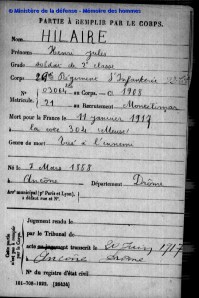 © Ministère de la défense - Mémoire des hommes
PARTIE À REMPLIR PAR LE CORPS.
Nom HILAIRE
Prénoms Henri Jules
Grade soldat de 2e classe
Corps Régiment d'Infanterie
N° au Corps. — Cl 1908
Matricule. 21 au Recrutement Montélimar
Mort pour la France le 11 janvier 1917
à la cote 304 Meuse
Genre de mort Tué à l'ennemi
Né le 7 Mars 1888
à Ancône Département Drôme
Arr' municipal (pr Paris et Lyon),
à défaut rue et N°.
Jugement rendu le
par le Tribunal de
acte ou jugement transcrit le 20 Juin 1917
à Ancône Drôme
N° du registre d'état civil